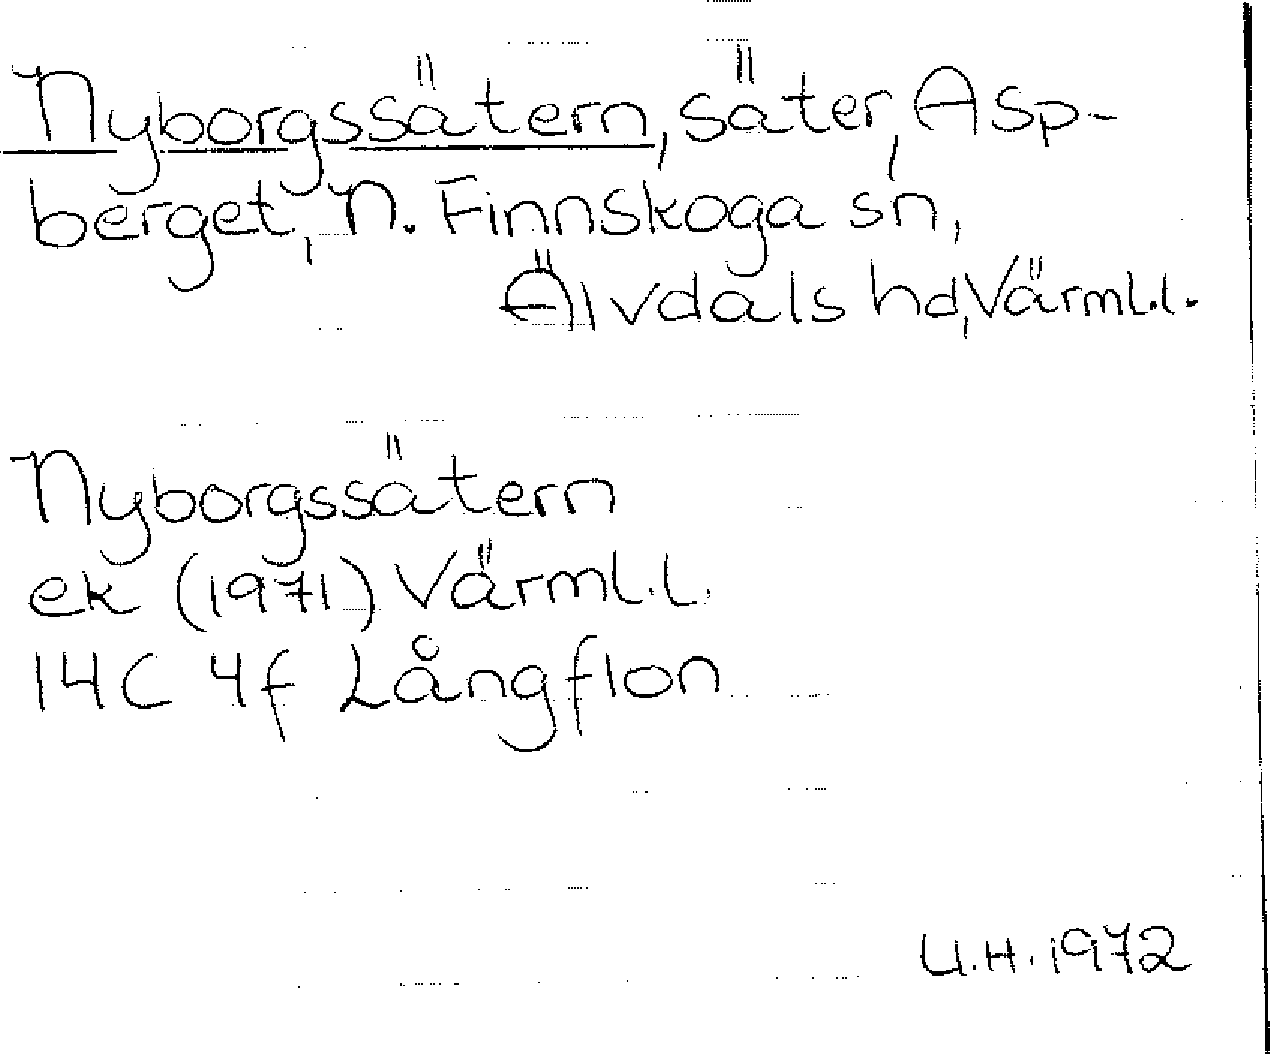 Nyborgssätern, säter, Asp-
berget, N. Finnskoga sn,
Älvdals hd, Värml.l.
Nyborgssätern
ek (1971) Värml.l.
14C 4f Långflon
U.H. 1972